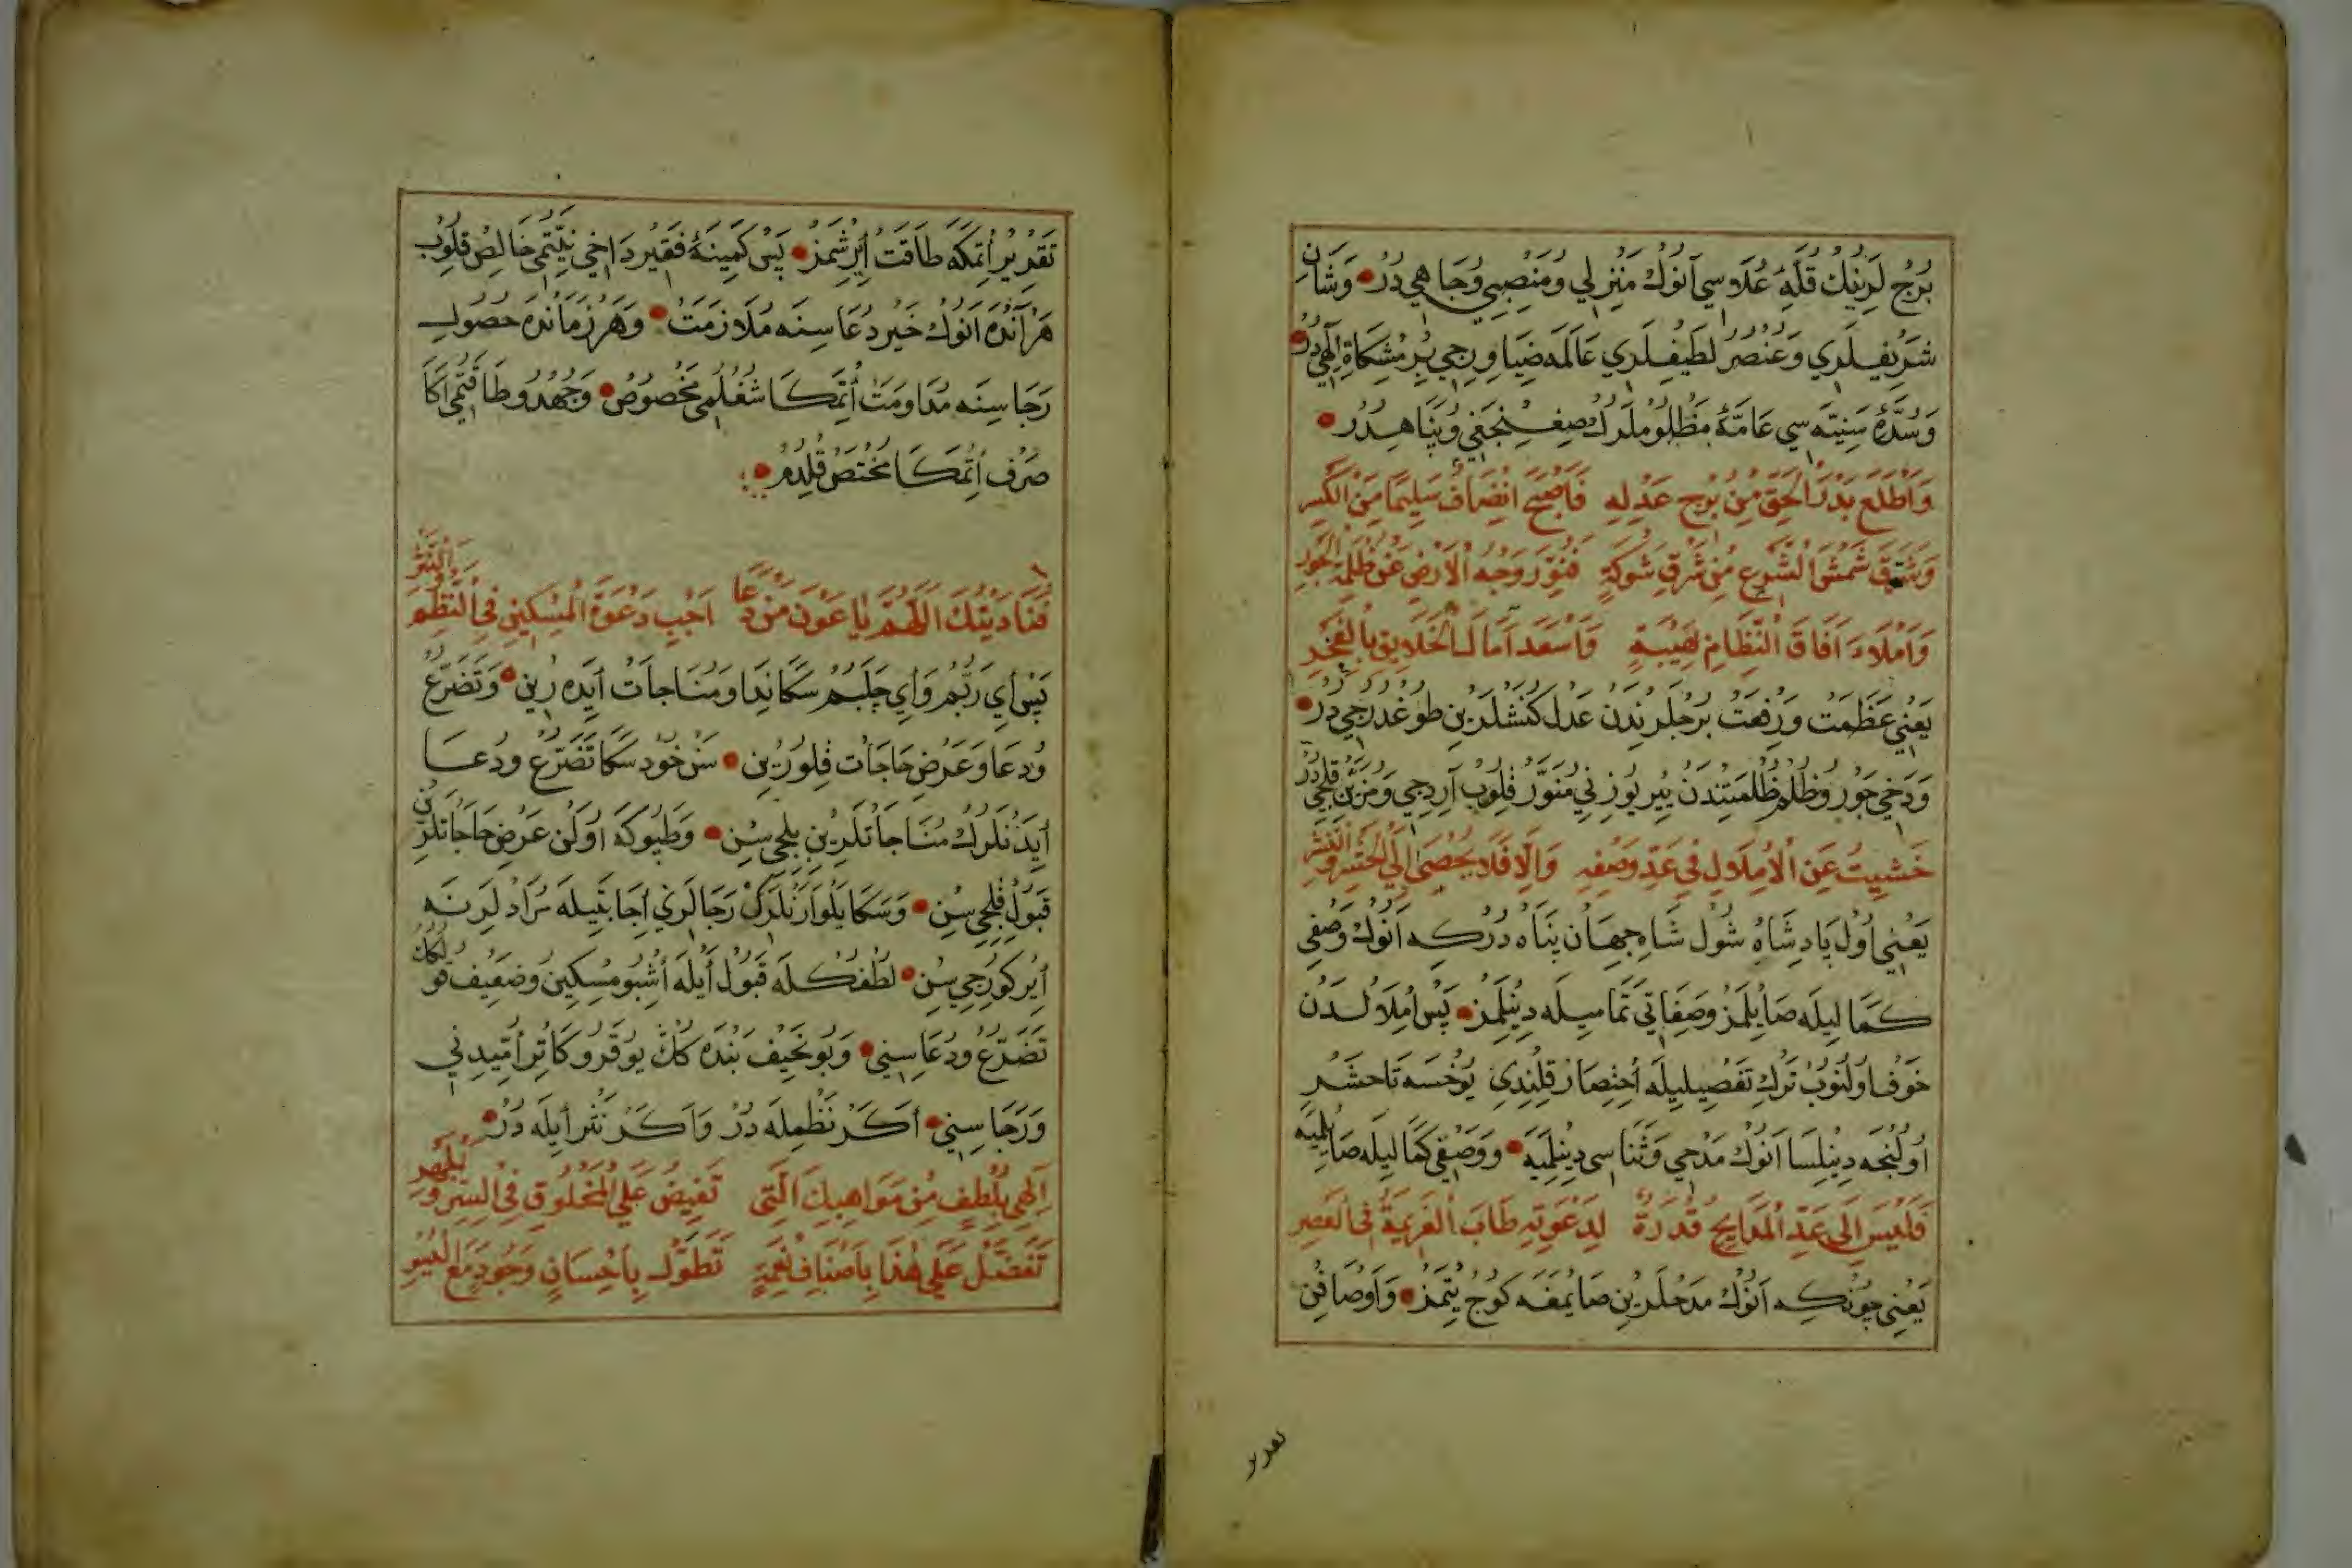 بُرْجْ لَرِينُكْ قُلَّهِٔ عُلَاوسِي آنُوكْ مَنْزِلِي وُمَنْصِبِي وُجَاهِي دُرْ وَشَانِ
شَرِيفِلَرِي وَعُنْصُرِ لَطِيفِلَرِي عَالَمَه ضِيَا وِرِجِي بِرْ مِشْكَاةِ اِلٰهِي دُرْ
وَسُدَّهٔ سَنِيَّه سِي عَامَّهٔ مَظْلُوملَرُكْ صِغِنْجَغِي وُپَنَاهِدُرْ
وَاَطْلَعَ بَدْرَ الْحَقِّ مِنْ بُرْجِ عَدْلِهِ فَاَصْبَحَ اِنْصَافٌ سَلِيمًا مِنَ الْكَسْرِ
وَشَرَّقَ شَمْسَ الشَّرْعِ مِنْ شَرْقِ شَوْكَةٍ فَنَوَّرَ وَجْهَ الْاَرْضِ عَنْ ظُلْمَةِ الْجَوْرِ
وَاَمْلَاءَ اٰفَاقَ النِّظَامِ بِهَيْبَةٍ وَاَسْعَدَ اٰمَالَ الْخَلَايِقِ بِالْفَخْرِ
يَعْنِي عَظَمَتْ وَرِفْعَتْ بُرْجْلَرِنْدَنْ عَدْل كُنَشْلَرِينِ طُوغْدُرِجِي دُرْ
وَدَخِي جَوْر وُظُلْم ظُلْمَتِنْدَنْ يِيرْ يُوزِنِي مُنَوَّرْ قِلُوبْ آرِدِجِي وَمُزَيَّنْ قِلِجِي دُرْ
خَشِيتُ عَنِ الْاِمْلَالِ فِي عَدِّ وَصْفِهِ وَاِلَّا فَلَا يُحْصَى اِلَى الْحَشْرِ وَالنَّشْرِ
يَعْنِي اُولْ پَادِشَاهْ شُولْ شَاهِ جِهَانْ پَنَاهْ دُرْكِه اَنُوكْ وَصْفِي
كَمَالِيلَه صَايِلْمَزْ وَصِفَاتِي تَمَامِيلَه دِينِلْمَزْ پَسْ اِمْلَالْدَنْ
خَوْف اُولُنُوبْ تَرْكِ تَفْصِيلِيلَه اُخْتِصَارْ قِلِنْدِي يُوخْسَه تَا حَشْر
اُولُنْجَه دِينِلْسَا اَنُوكْ مَدْحِي وَثَنَاسِي دِينِلْمِيَه وَوَصْفِي كَمَالِيلَه صَايِلْمِيَه
فَلَيْسَ اِلَى عَدِّ الْمَدَايِحِ قُدْرَةٌ لِدَعْوَتِهِ طَابَ الْعَزِيمَةُ فِي الْعَصْرِ
يَعْنِي چُونْكِه اَنُوكْ مَدْحْلَرِينِ صَايْمَغَه كُوجْ يِتْمَزْ وَاَوْصَافِنْ
تقدير
تَقْدِيرْ اِتْمَكَه طَاقَتْ اِيرِشْمَزْ پَسْ كَمِينَهٔ فَقِيرْ دَاخِي نِيَّتِمِي خَالِصْ قِلُوبْ
هَرْ آنْدَه اَنُوكْ خَيْر دُعَاسِنَه مُلَازَمَتْ وَهَرْ زَمَانْدَه حُصُولِ
رَجَاسِنَه مُدَاوَمَتْ اِتْمَكَا شُغْلُمِي مَخْصُوصْ وَجُهْدُ وطَاقَتِمِي آكَا
صَرْفْ اِتْمَكَا مُخْتَصْ قِلْدُمْ
فَنَادَيْتُكَ اللّٰهُمَّ يَا عَوْنَ مَنْ دَعَا اَجِبْ دَعْوَةَ الْمِسْكِينِ فِي النَّظْمِ وَالنَّثْرِ
پَسْ اَيْ رَبُّمْ وَاَيْ چَلَبُمْ سَكَا نِدَا وَمُنَاجَاتْ اَيْدَه رِينْ وَتَضَرُّعْ
وُدُعَا وَعَرْضِ حَاجَاتْ قِلُورِينْ سَنْ خُودْ سَكَا تَضَرُّعْ وَدُعَا
اَيْدَنْلَرُكْ مُنَاجَاتْلَرِينِ بِلِجِي سِنْ وَطَپُوكَه اُولَنْ عَرْضِ حَاجَاتْلَرِنْ
قَبُولْ قِلِجِي سِنْ وَسَكَا يَلْوَارَنْلَرُكْ رَجَالَرِي اِجَابَتِيلَه مُرَادْلَرِنَه
اِيرْكُورِجِي سِنْ لُطْفُكْلَه قَبُولْ اَيْلَه اُشْبُو مِسْكِينْ وُضَعِيفْ قُولُكُكْ
تَضَرُّعْ وَدُعَاسِنِي وَبُو نَحِيفْ بَنْدَه كُكْ يُوقَرُو كَاتِرْ اُمِّيدِنِي
وَرَجَاسِنِي اَكَرْ نَظْمِلَه دُرْ وَاَكَرْ نَثْر اَيلَه دُرْ
اِلٰهِي بِلُطْفٍ مِنْ مَوَاهِبِكَ الَّتِي تَفِيضُ عَلَى الْمَخْلُوقِ فِي السِّرِّ وَالْجَهْرِ
تَفَضَّلْ عَلَى هٰذَا بِاَصْنَافِ نِعْمَةٍ تَطَوَّلْ بِاِحْسَانٍ وَجُودٍ مَعَ الْيُسْرِ